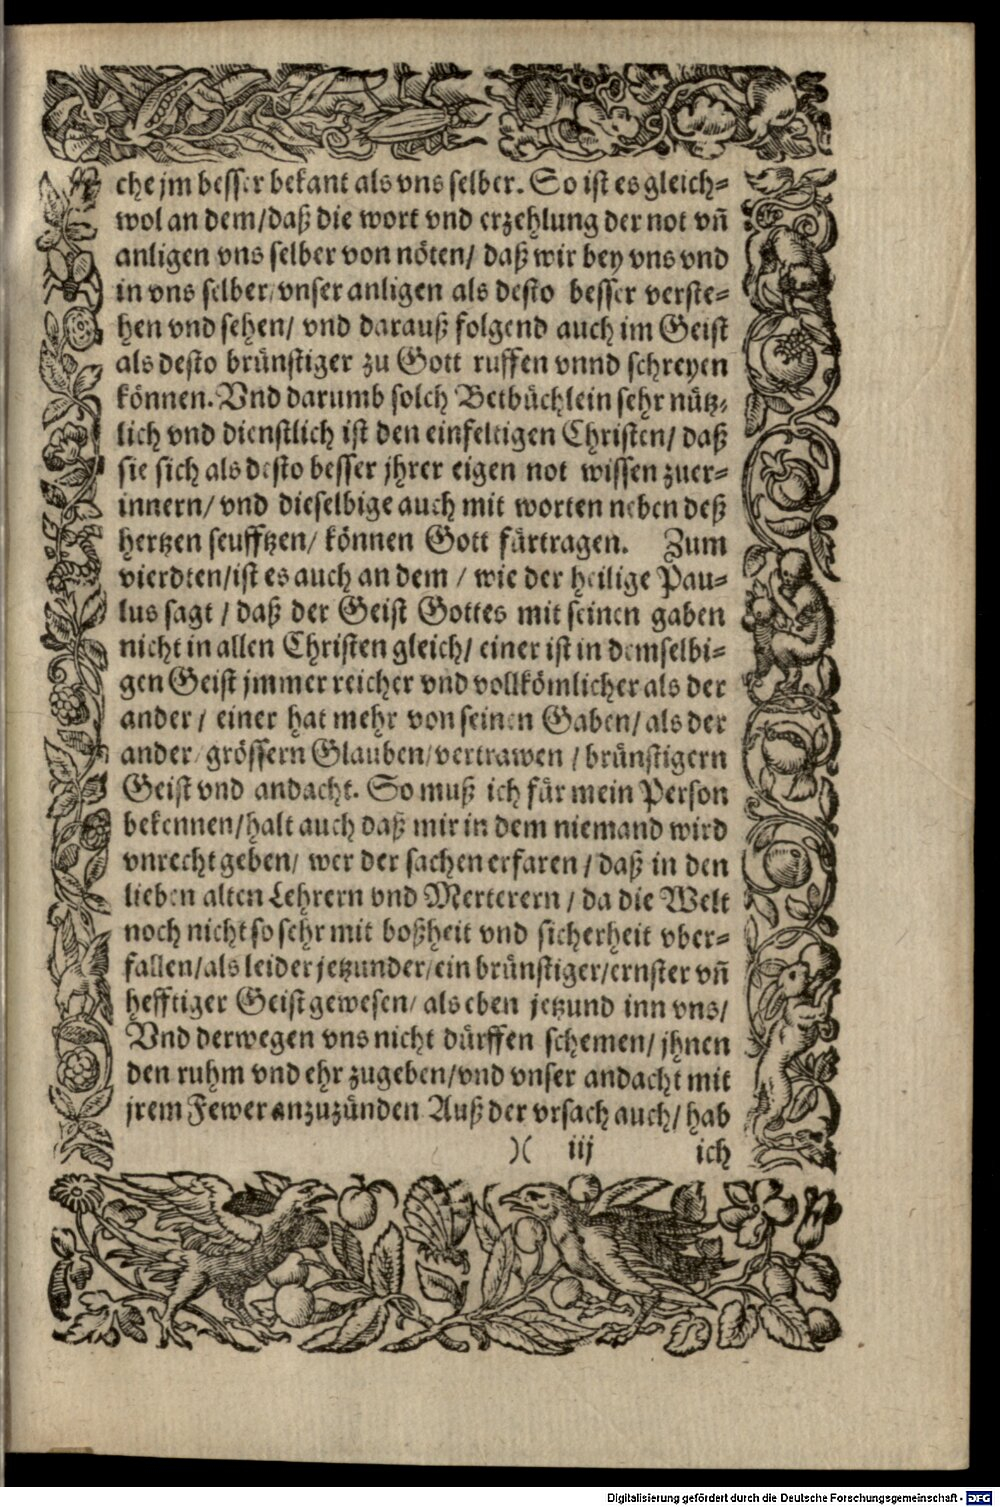 che jm besser bekant als vns selber. So ist es gleich-
wol an dem/daß die wort vnd erzehlung der not vn̄
anligen vns selber von nöten/ daß wir bey vns vnd
in vns selber/vnser anligen als desto besser verste-
hen vnd sehen/ vnd darauß folgend auch im Geist
als desto brünstiger zu Gott ruffen vnnd schreyen
können. Vnd darumb solch Betbüchlein sehr nütz-
lich vnd dienstlich ist den einfeltigen Christen/ daß
sie sich als desto besser jhrer eigen not wissen zuer-
innern/ vnd dieselbige auch mit worten neben deß
hertzen seufftzen/ können Gott fürtragen. Zum
vierdten/ist es auch an dem / wie der heilige Pau-
lus sagt / daß der Geist Gottes mit seinen gaben
nicht in allen Christen gleich/ einer ist in demselbi-
gen Geist jmmer reicher vnd vollkömlicher als der
ander / einer hat mehr von seinen Gaben/ als der
ander/ grössern Glauben/vertrawen / brünstigern
Geist vnd andacht. So muß ich für mein Person
bekennen/halt auch daß mir in dem niemand wird
vnrecht geben/ wer der sachen erfaren / daß in den
lieben alten Lehrern vnd Merterern / da die Welt
noch nicht so sehr mit boßheit vnd sicherheit vber-
fallen/als leider jetzunder/ein brünstiger/ernster vn̄
hefftiger Geist gewesen/ als eben jetzund inn vns/
Vnd derwegen vns nicht dürffen schemen/ jhnen
den ruhm vnd ehr zugeben/vnd vnser andacht mit
jrem Fewer anzuzünden Auß der vrsach auch/ hab
)( iij ich
Digitalisierung gefördert durch die Deutsche Forschungsgemeinschaft - DFG